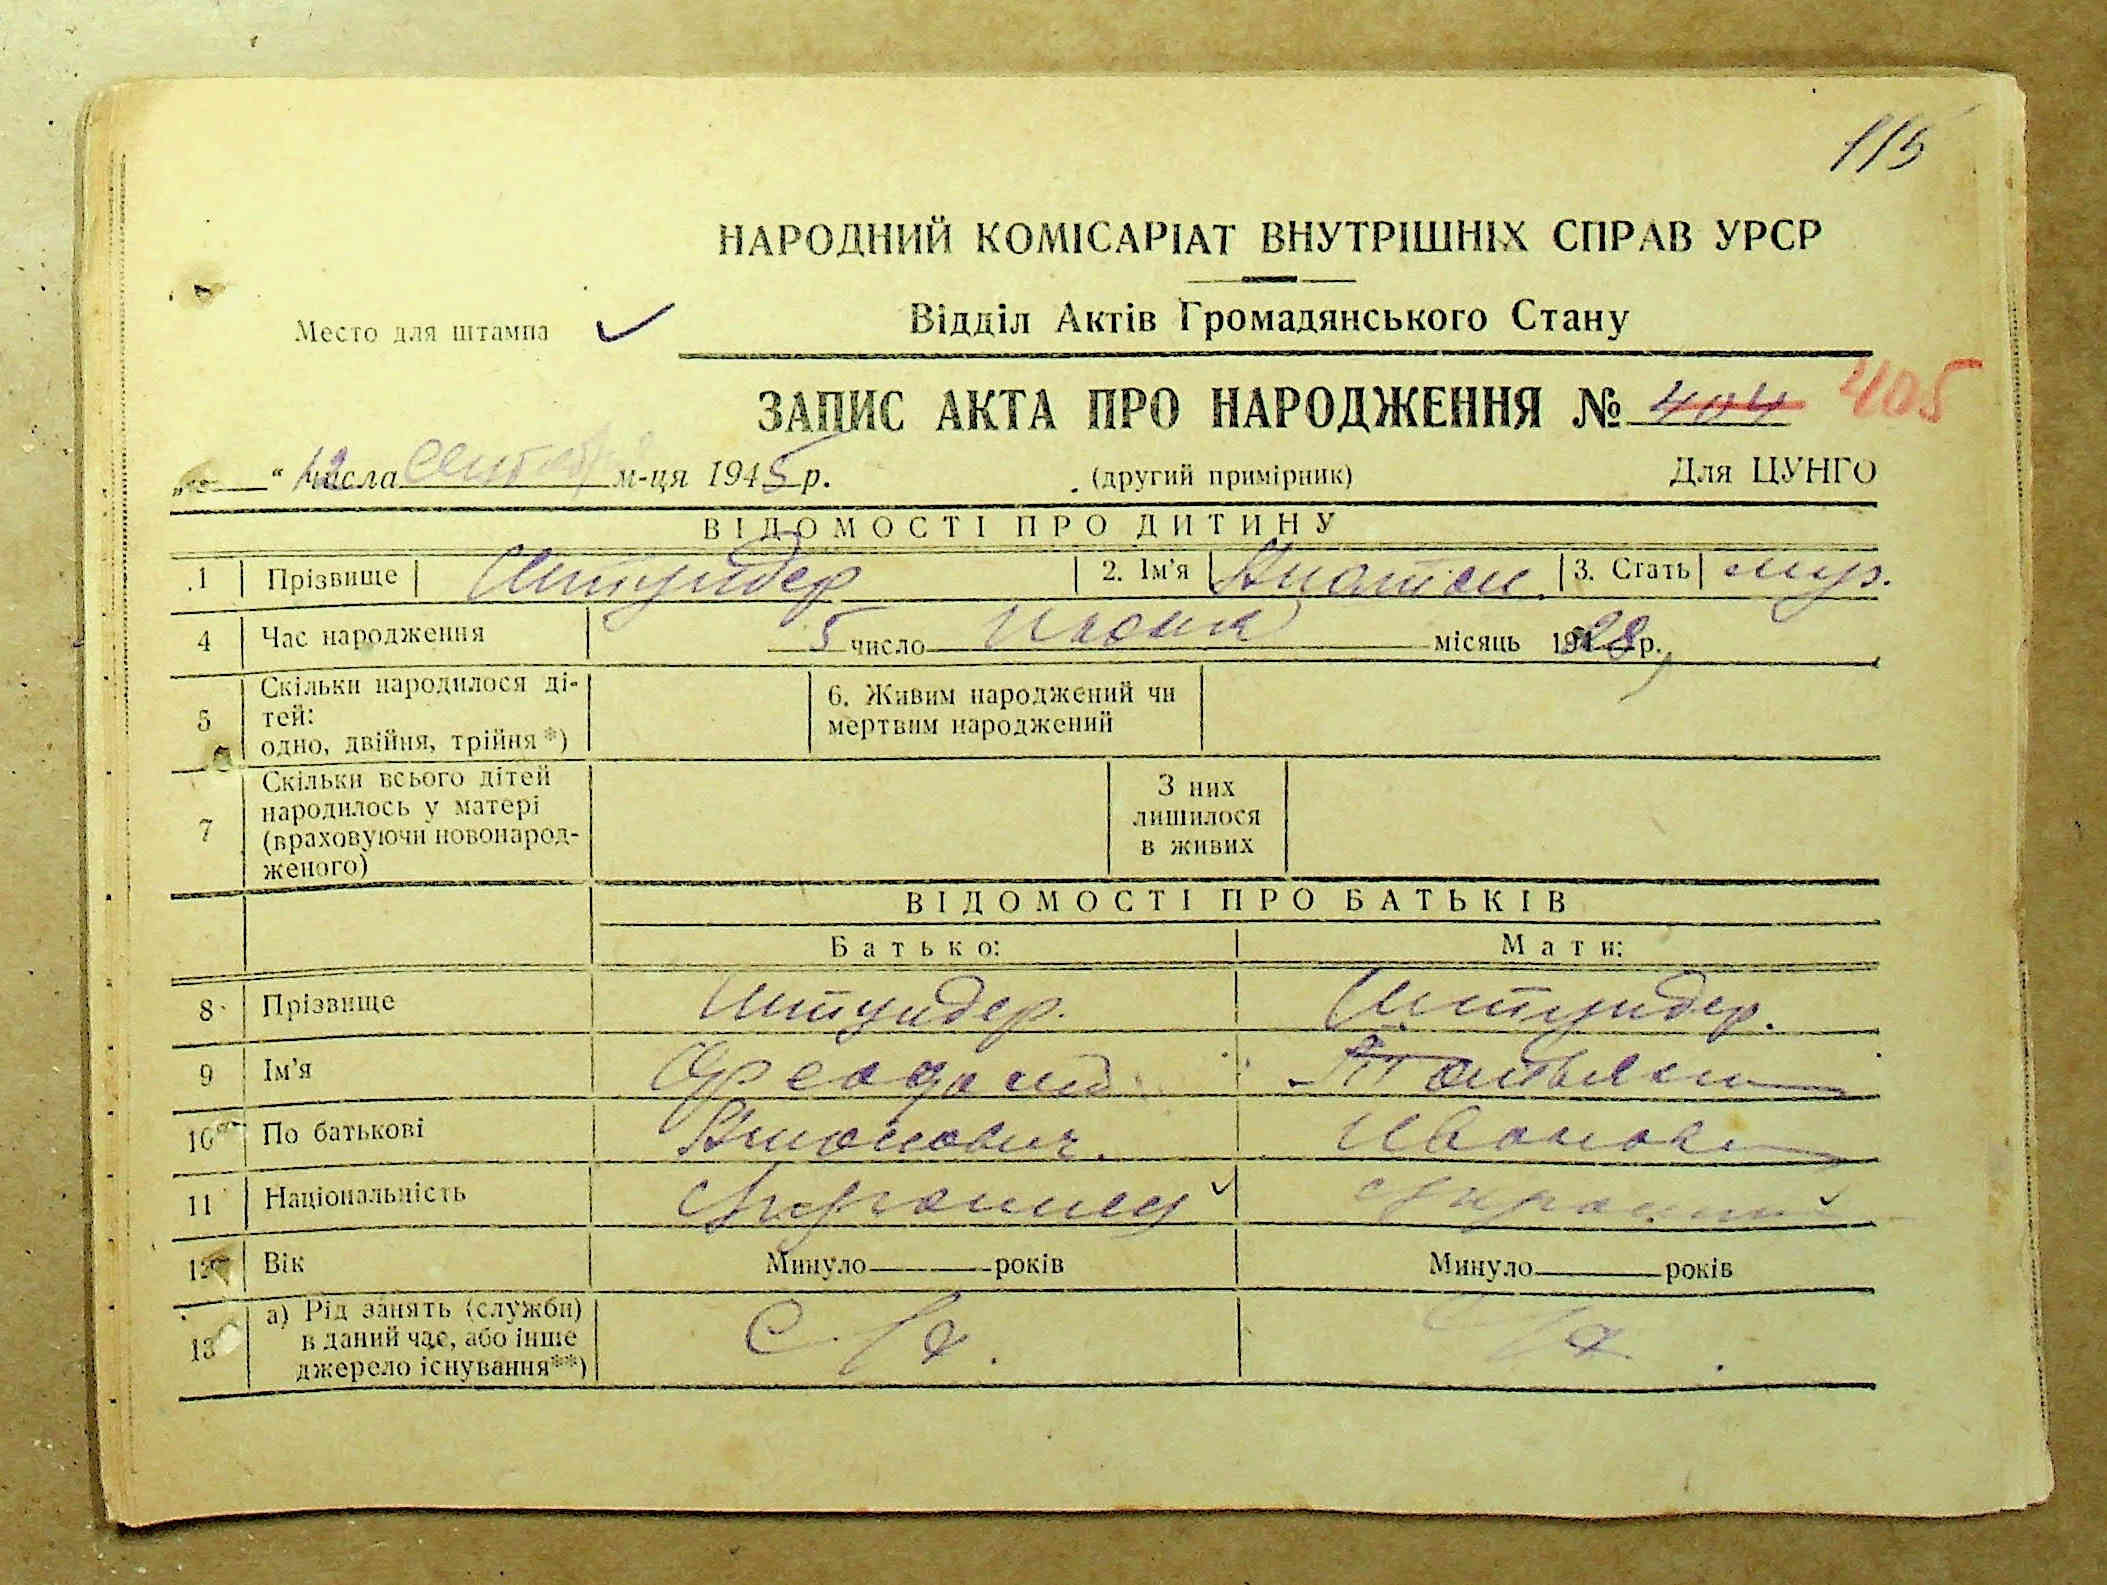 115
НАРОДНИЙ КОМІСАРІАТ ВНУТРІШНІХ СПРАВ УРСР
Место для штампа
Відділ Актів Громадянського Стану
ЗАПИС АКТА ПРО НАРОДЖЕННЯ № 404 405
„ “ 12 числа м-ця 1945 р. (другий примірник) Для ЦУНГО
ВІДОМОСТІ ПРО ДИТИНУ
1 Прізвище Штундер 2. Ім'я 3. Стать муж.
4 Час народження 5 число Июня місяць 1928 р.
5 Скільки народилося ді-
тей:
одно, двійня, трійня*)
6. Живим народжений чи
мертвим народжений
7 Скільки всього дітей
народилось у матері
(враховуючи новонарод-
женого)
З них
лишилося
в живих
ВІДОМОСТІ ПРО БАТЬКІВ
Батько: Мати:
8 Прізвище Штундер. Штундер.
9 Ім'я Феодосий
10 По батькові Ивановн
11 Національність Украинец
12 Вік Минуло років Минуло років
13 а) Рід занять (служби)
в даний час, або інше
джерело існування**)
С/х. С/х.